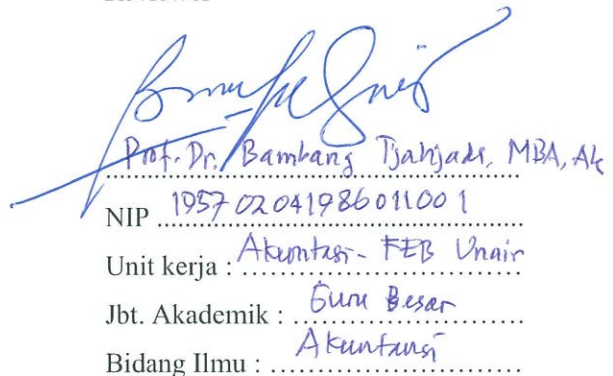 Prof. Dr. Bambang Tjahjadi, MBA, Ak
NIP 195702041986011001
Unit kerja : Akuntasi - FEB Unair
Jbt. Akademik : Guru Besar
Bidang Ilmu : Akuntansi